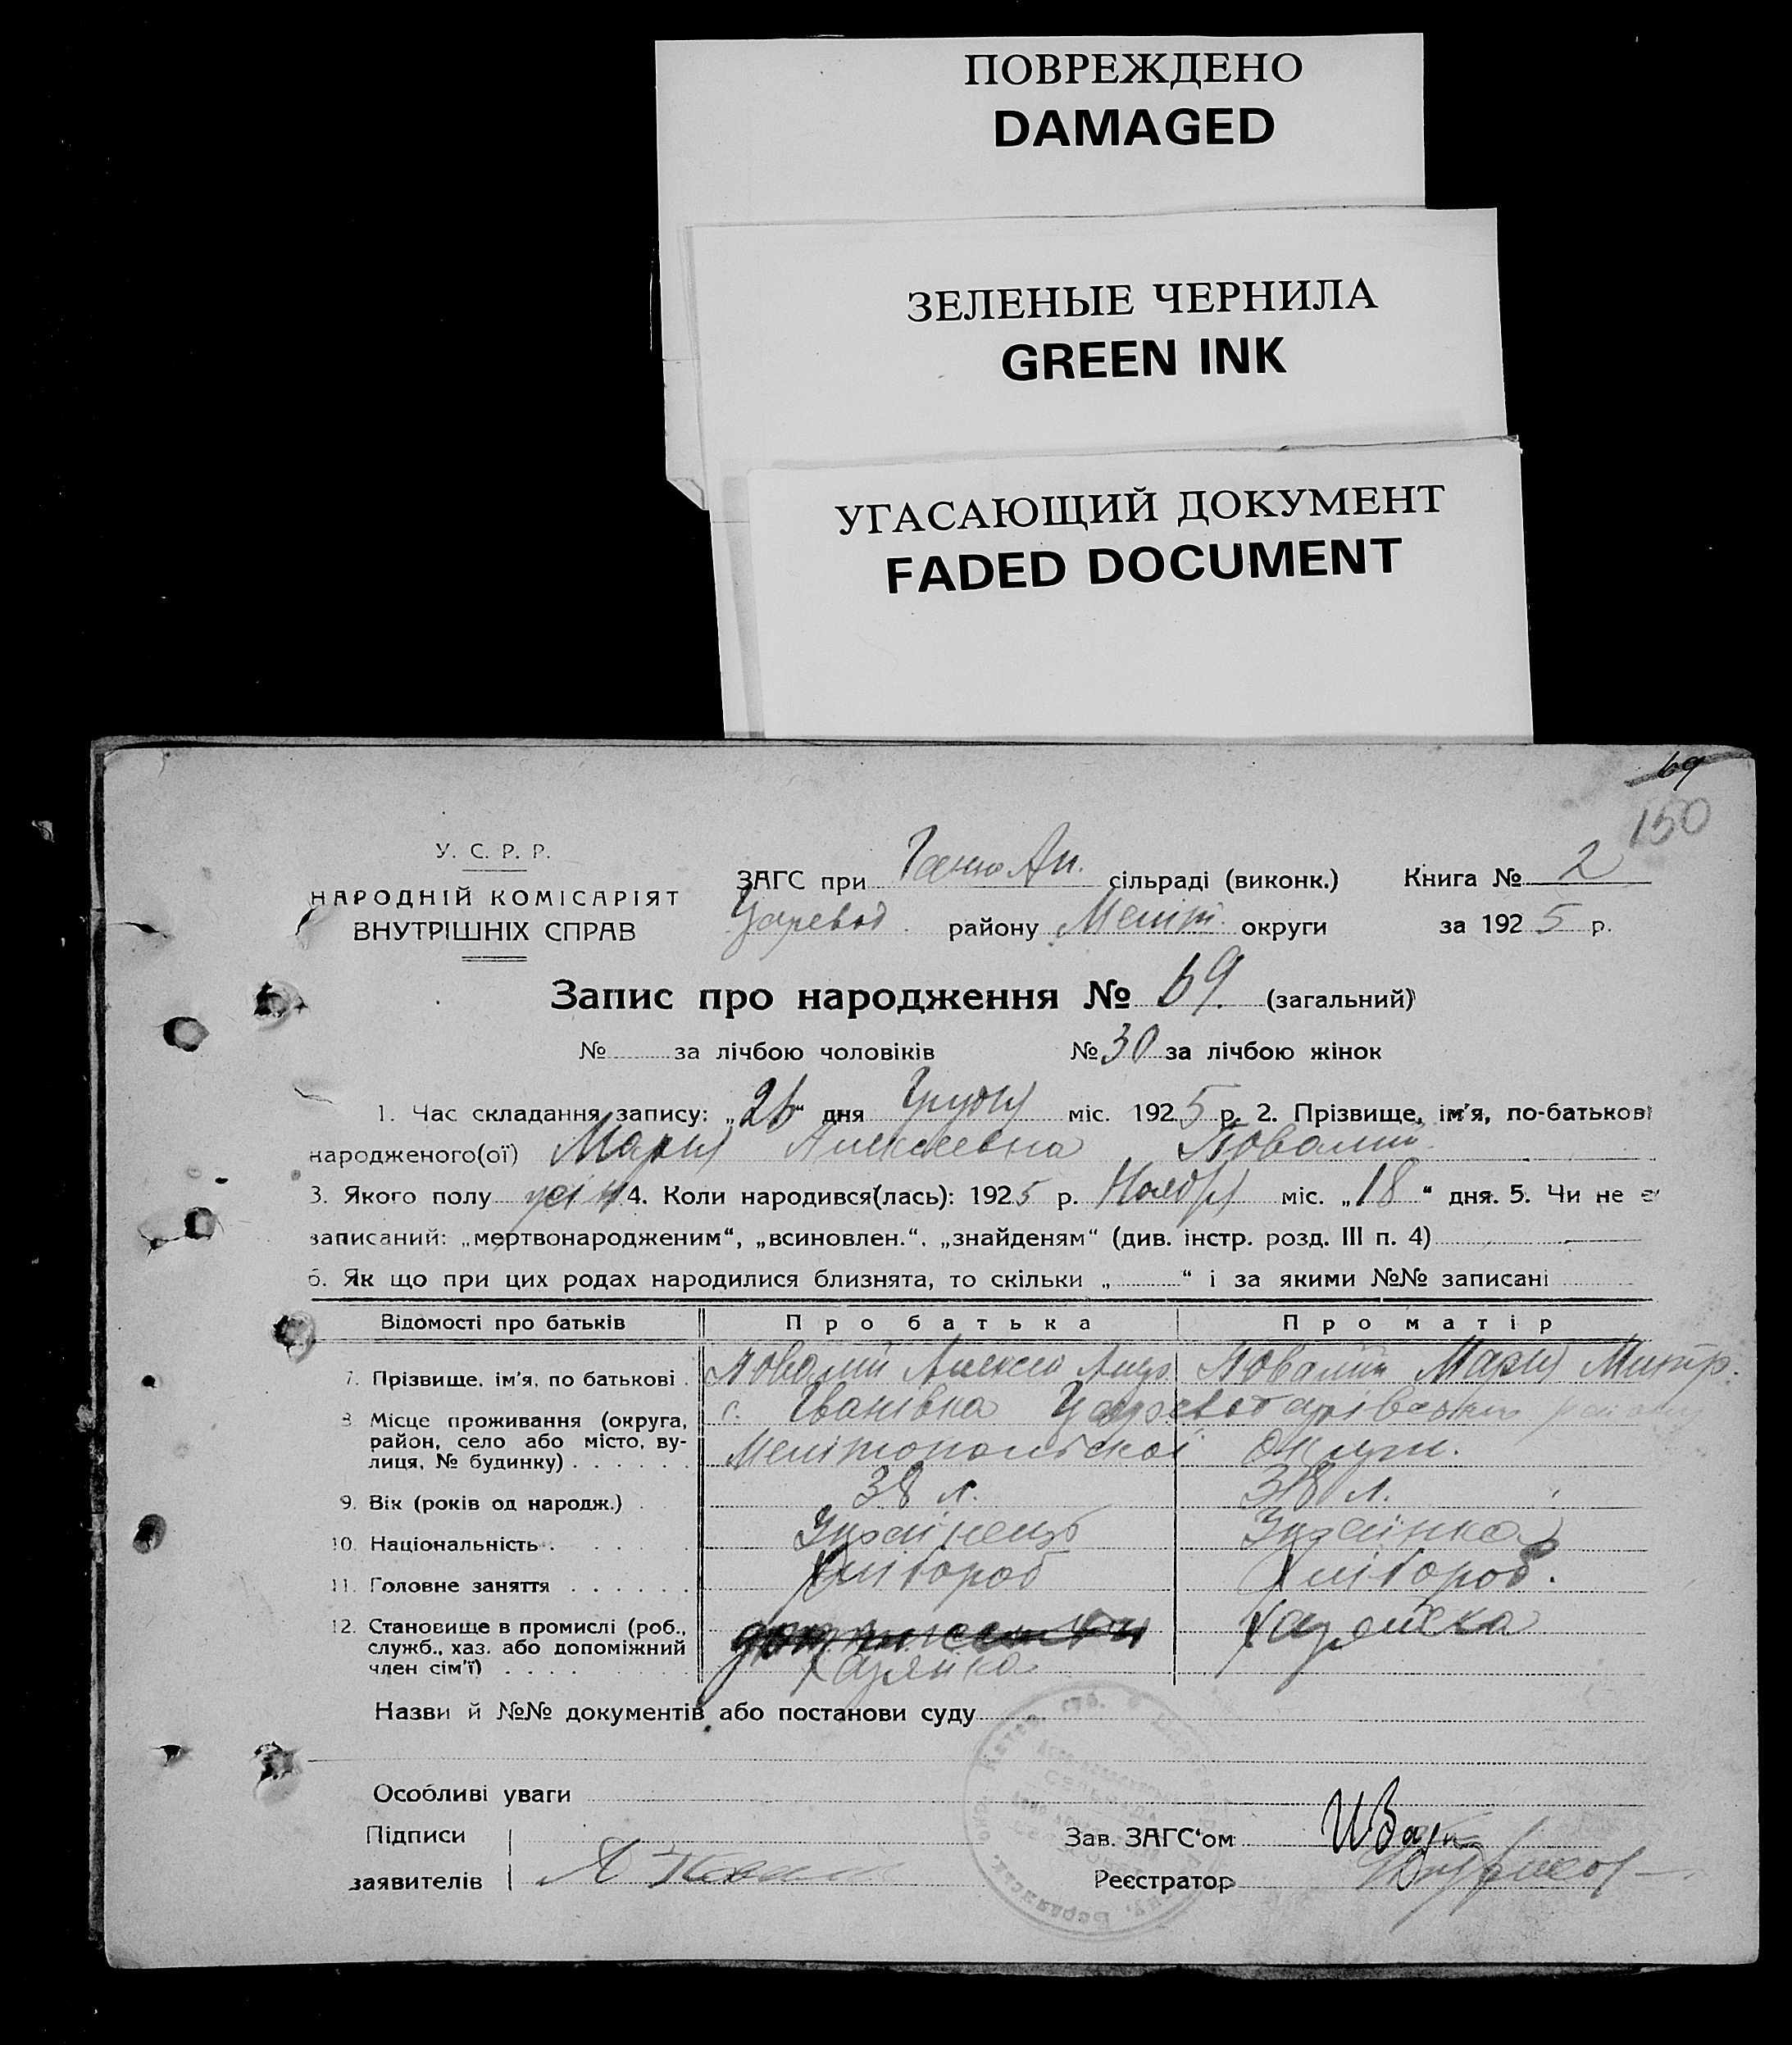 ПОВРЕЖДЕНО
DAMAGED
ЗЕЛЕНЫЕ ЧЕРНИЛА
GREEN INK
УГАСАЮЩИЙ ДОКУМЕНТ
FADED DOCUMENT
69
150
У. С. Р. Р.
НАРОДНІЙ КОМІСАРІЯТ
ВНУТРІШНІХ СПРАВ
ЗАГС при сільраді (виконк.) Книга № 2
Царевод. району Меліт. округи за 1925 р.
Запис про народження № 69. (загальний)
№ за лічбою чоловіків № 30 за лічбою жінок
1. Час складання запису: „26“ дня Грудня міс. 1925 р. 2. Прізвище, ім'я, по-батькові
народженого(ої) Мария Алексеевна Ковалий
3. Якого полу 4. Коли народився(лась): 1925 р. Ноября міс. „18“ дня. 5. Чи не є
записаний: „мертвонародженим“, „всиновлен.“, „знайденям“ (див. інстр. розд. III п. 4)
6. Як що при цих родах народилися близнята, то скільки „ “ і за якими №№ записані
Відомості про батьків Про батька Про матір
7. Прізвище, ім'я, по батькові Ковалий Алексей Ковалий Мария Митр.
8 Місце проживання (округа, район, село або місто, вулиця, № будинку) с. Іванівка
Мелітопольскої округи.
9. Вік (років од народж.) 38 л. 38 л.
10. Національність Українець Українка
11. Головне заняття Хлібороб Хлібороб.
12. Становище в промислі (роб., служб., хаз. або допоміжний член сім'ї) Хазяйка Хазяйка
Назви й №№ документів або постанови суду
Особливі уваги
Підписи
заявителів
Зав. ЗАГС'ом
Реєстратор